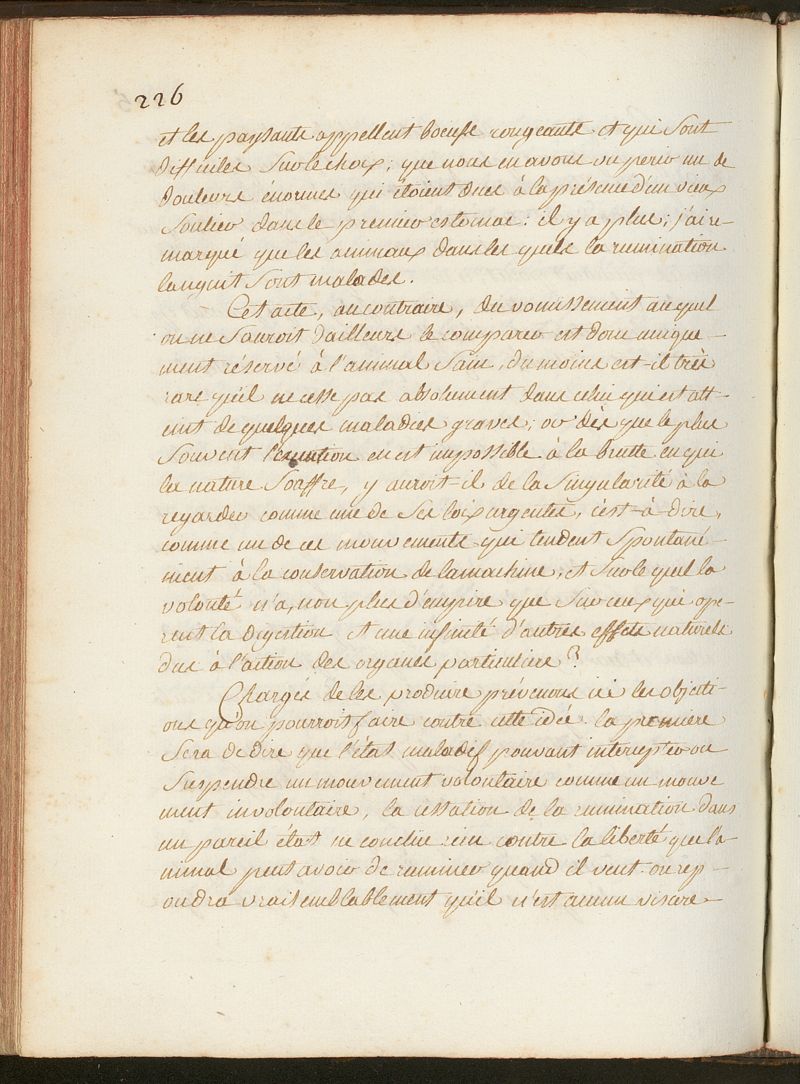 226
et les paysants appellent boeufs rongeants et qui sont
difficiles sur le choix; que nous en avons vu perir un de
douleurs énormes qui étoient dues à la présence d'un vieux
Soulier dans le premier estomac: il y a plus; j'ai re-
marqué que les animaux dans les quels la rumination
languit sont malades.
Cet acte, au contraire, du vomissement au quel
on ne Sauroit dailleurs le comparer est donc unique-
ment réservé à l'animal Sain, du moins est-il très
rare qu'il ne cesse pas absolument dans celui qui est att-
eint de quelques maladies graves; or dès que le plus
Souvent l'exécution en est impossible à la brutte en qui
la nature Souffre, y auroit-il de la Singularité à la
regarder comme une de Ses loix urgentes, c'est-à-dire,
comme un de ces mouvements qui tendent Spontané-
ment à la conservation de la machine; et sur le quel la
volonté n'a, non plus d'empire que sur ceux qui opè-
rent la digestion et une infinité d'autres effets naturels
dus à l'action des organes particuliers?
Chargés de les produire prévenons ici les objecti-
ons qu'on pourroit faire contre cette idée. la premiere
Sera de dire que l'état maladif pouvant intercepter ou
Suspendre un mouvement volontaire comme un mouve
ment involontaire, la cessation de la rumination dans
un pareil état ne conclue rien contre la liberté que la-
nimal peut avoir de ruminer quand il veut. on rep-
ondra vraisemblablement qu'il n'est aucun viscere